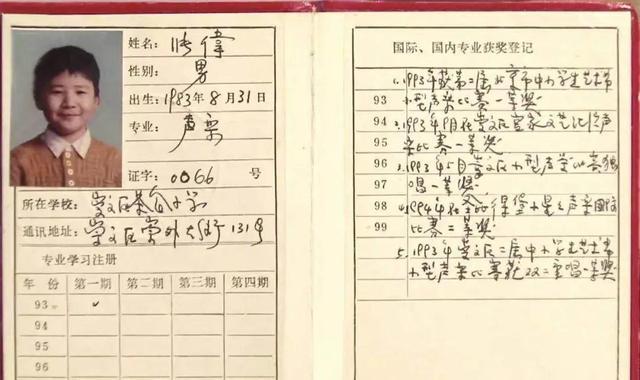 姓名: 张偉
性别: 男
出生: 1983年8月31日
专业: 声乐
证字: 0066 号
所在学校: 崇文区茶食小学
通讯地址: 崇文区崇外大街131号
专业学习注册
年份 第一期 第二期 第三期 第四期
93 ✓
94
95
96
国际、国内专业获奖登记
1. 1993年获第二届北京市中小学生艺术节
93 小型声乐比赛一等奖
94 2. 1993年9月在崇文区 声
95 乐比赛一等奖
96 3. 1993年5月崇文区小型声乐比赛独
97 唱一等奖
98 4. 1994年 声乐
99 比赛二等奖
5. 1993年崇文区二届中小学生艺术节
小型声乐比赛获双二重唱一等奖